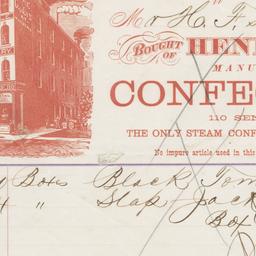 Mr H. F. S
BOUGHT OF HEN
MANU
CONFEC
110 SEN
THE ONLY STEAM CONF
No impure article used in this
Boxes Black Tom
" Slap Jack
Box